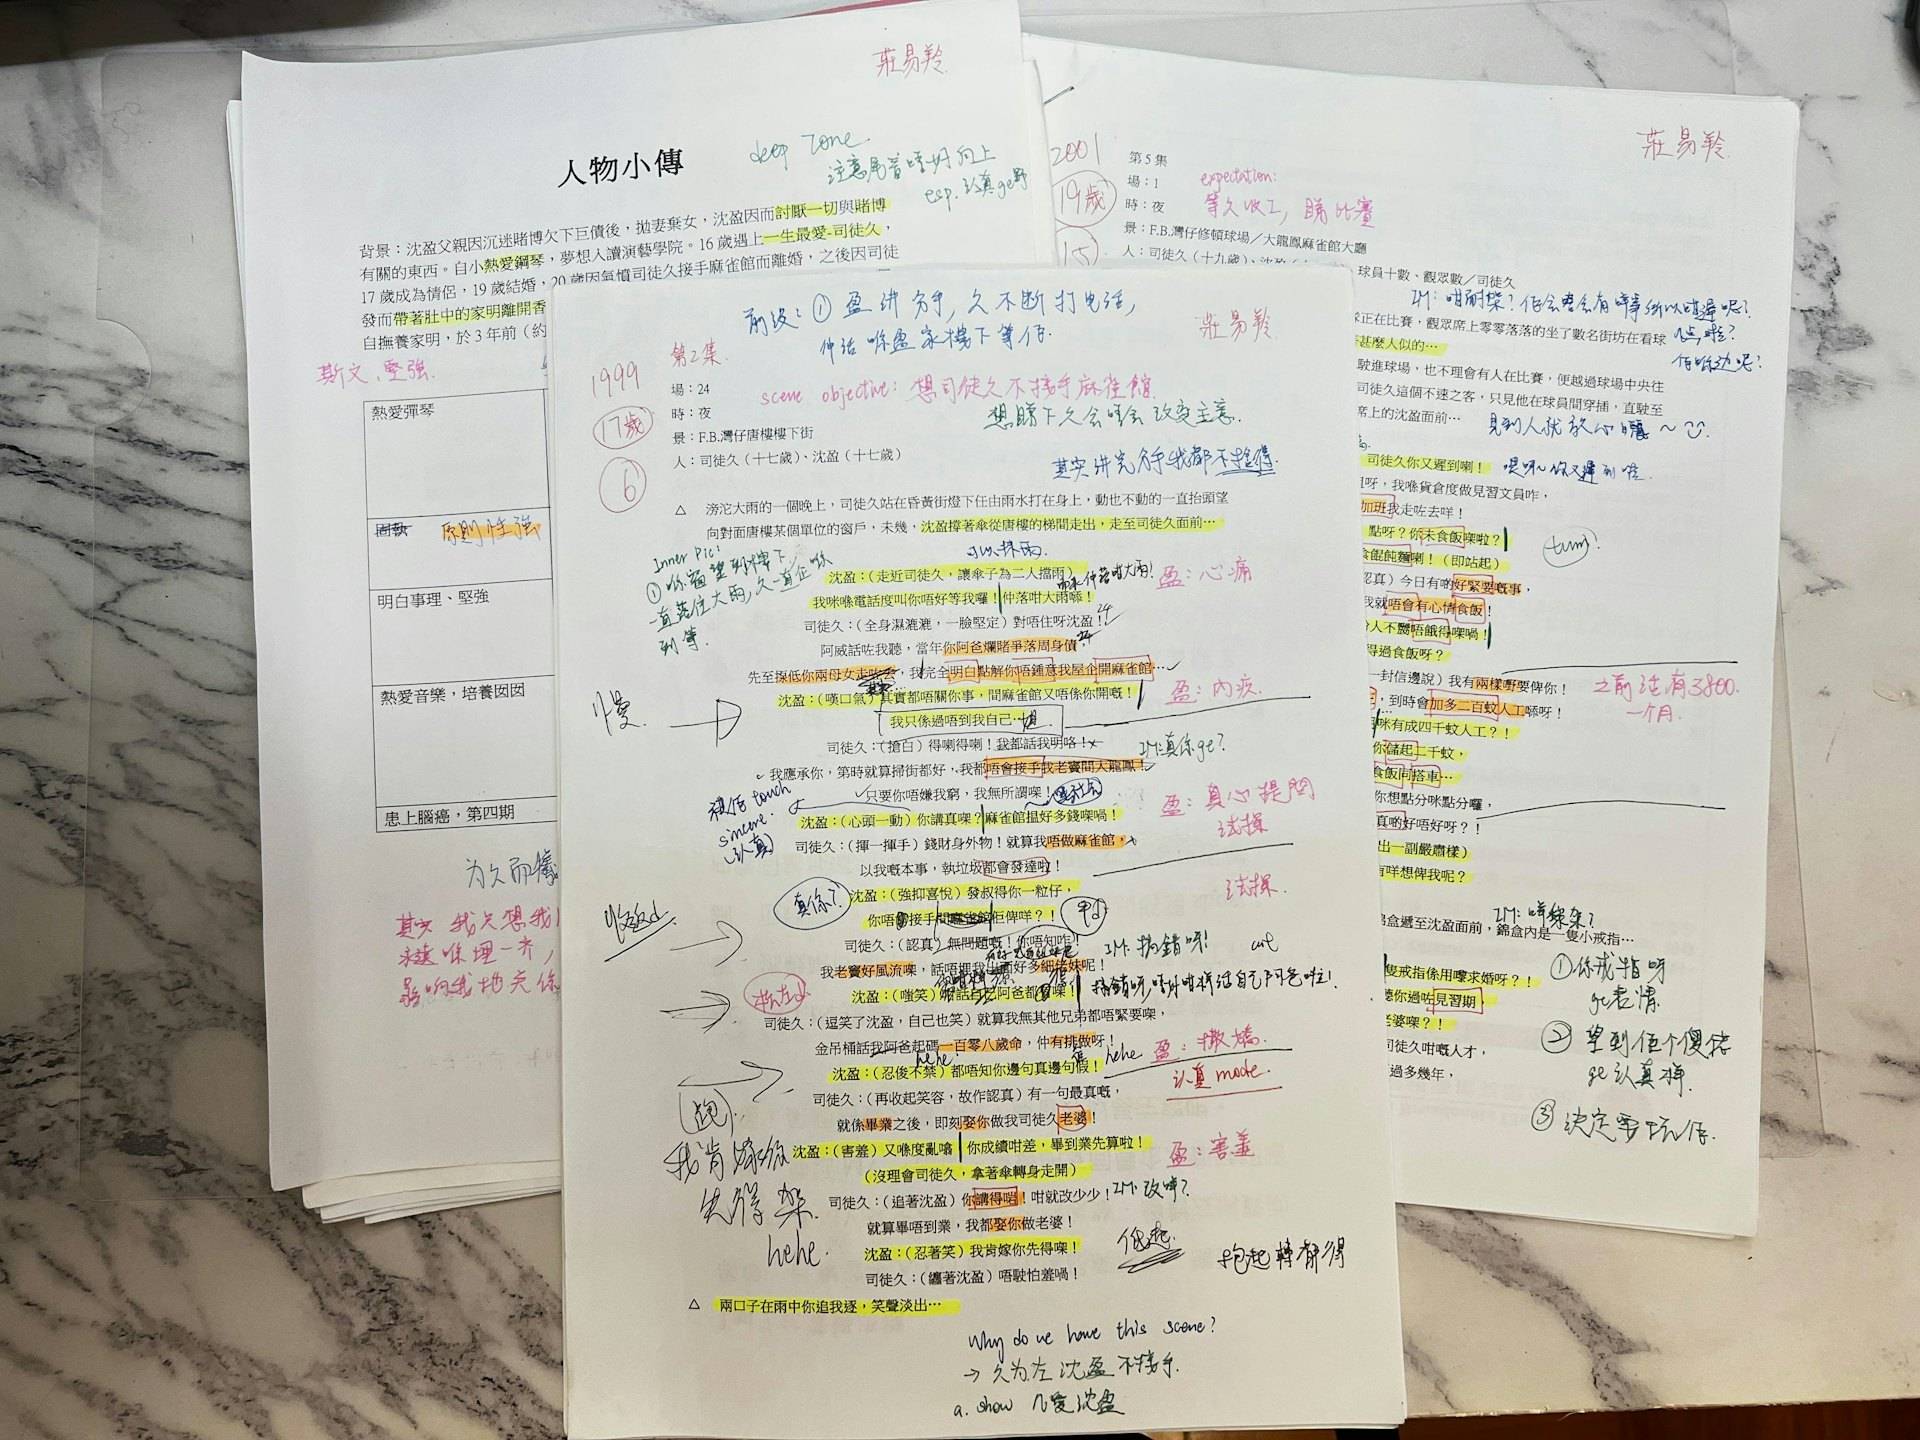 莊易羚
人物小傳
deep zone
注意尾音唔好向上
esp. 認真ge野
背景：沈盈父親因沉迷賭博欠下巨債後，拋妻棄女，沈盈因而討厭一切與賭博
有關的東西。自小熱愛鋼琴，夢想入讀演藝學院。16歲遇上一生最愛-司徒久，
17歲成為情侶，19歲結婚，20歲因氣憤司徒久接手麻雀館而離婚，之後因司徒
發而帶著肚中的家明離開香
自撫養家明，於3年前（約
斯文、堅強
熱愛彈琴
固執 原則性強
明白事理、堅強
熱愛音樂，培養囡囡
患上腦癌，第四期
為久而
其實我只想我
永遠喺埋一齊，
前設：① 盈讲分手，久不断打电话，
仲話喺盈家樓下等佢.
莊易羚
1999
第2集
17歲
6
場：24
時：夜
景：F.B.灣仔唐樓樓下街
人：司徒久（十七歲）、沈盈（十七歲）
scene objective: 想司徒久不接手麻雀館
想睇下久会唔会改变主意.
其实讲完分手我都不捨得
△ 滂沱大雨的一個晚上，司徒久站在昏黃街燈下任由雨水打在身上，動也不動的一直抬頭望
向對面唐樓某個單位的窗戶，未幾，沈盈撐著傘從唐樓的梯間走出，走至司徒久面前…
Inner Pic:
① 喺窗望到樓下
一直落住大雨，久一直企喺
到等.
沈盈：（走近司徒久，讓傘子為二人擋雨）
盈：心痛
我咪喺電話度叫你唔好等我囉！仲落咁大雨喺！
司徒久：（全身濕漉漉，一臉堅定）對唔住呀沈盈！
阿威話咗我聽，當年你阿爸爛賭爭落周身債
先至掭低你兩母女走咗去，我完全明白點解你唔鍾意我屋企開麻雀館…
沈盈：（嘆口氣）其實都唔關你事，間麻雀館又唔係你開嘅！
盈：內疚
慢
我只係過唔到我自己…
司徒久：（搶白）得喇得喇！我都話我明咯！
IM: 真係ge?
我應承你，第時就算掃街都好，我都唔會接手我老竇間大龍鳳！
只要你唔嫌我窮，我無所謂㗎！
被佢touch
sincere.
（認真）
盈：真心提問
试探
沈盈：（心頭一動）你講真㗎？麻雀館搵好多錢㗎喎！
司徒久：（揮一揮手）錢財身外物！就算我唔做麻雀館，
以我嘅本事，執垃圾都會發達啦！
试探.
真係？
沈盈：（強抑喜悅）發叔得你一粒仔，
你唔接手間麻雀館佢俾咩？！
收返d
司徒久：（認真）無問題嘅！你唔知咋！
IM: 搞錯呀！
cut
我老竇好風流㗎，話唔埋我出面好多細佬妹呢！
沈盈：（嗤笑）
司徒久：（逗笑了沈盈，自己也笑）就算我無其他兄弟都唔緊要㗎，
金吊桶話我阿爸起碼一百零八歲命，仲有排做呀！
盈：撒嬌
hehe!
hehe
沈盈：（忍俊不禁）都唔知你邊句真邊句假！
認真 mode.
司徒久：（再收起笑容，故作認真）有一句最真嘅，
就係畢業之後，即刻娶你做我司徒久老婆！
沈盈：（害羞）又喺度亂噏，你成績咁差，畢到業先算啦！
盈：害羞
（沒理會司徒久，拿著傘轉身走開）
我肯嫁你
先得架.
hehe.
司徒久：（追著沈盈）你講得啱！咁就改少少！
IM: 改咩?
就算畢唔到業，我都娶你做老婆！
沈盈：（忍著笑）我肯嫁你先得㗎！
抱起轉都得
司徒久：（纏著沈盈）唔駛怕羞喎！
△ 兩口子在雨中你追我逐，笑聲淡出…
Why do we have this scene?
→ 久为左沈盈不接手.
a. show 久愛沈盈
莊易羚
2001
19歲
15
第5集
場：1
時：夜
景：F.B.灣仔修頓球場／大龍鳳麻雀館大廳
人：司徒久（十九歲）、沈盈
球員十數、觀眾數／司徒久
expectation:
等久收工，睇比賽
IM: 咁耐架？佢会唔会有咩事所以咁遲呢？
佢喺边呢？
正在比賽，觀眾席上零零落落的坐了數名街坊在看球
甚麼人似的…
駛進球場，也不理會有人在比賽，便越過球場中央往
司徒久這個不速之客，只見他在球員間穿插，直駛至
席上的沈盈面前…
見到人就放心晒～
司徒久你又遲到喇！
呀，我喺貨倉度做見習文員咋，
加班我走咗去咩！
點呀？你未食飯㗎啦？
食餛飩麵喇！（即站起）
認真）今日有啲好緊要嘅事，
我就唔會有心情食飯！
人不嬲唔餓得㗎喎！
得過食飯呀？
一封信邊說）我有兩樣嘢要俾你！
之前話有3800.
一个月.
，到時會加多二百蚊人工㗎呀！
咪有成四千蚊人工？！
你儲起二千蚊，
食飯同搭車…
你想點分咪點分囉，
真啲好唔好呀？！
出一副嚴肅樣）
有咩想俾我呢？
錦盒遞至沈盈面前，錦盒內是一隻小戒指…
隻戒指係用嚟求婚呀？！
聽你過咗見習期
老婆㗎？！
司徒久咁嘅人才，
過多幾年，
① 係戒指呀
ge表情
② 望到佢个傻佬
ge認真樣.
③ 決定要玩佢.